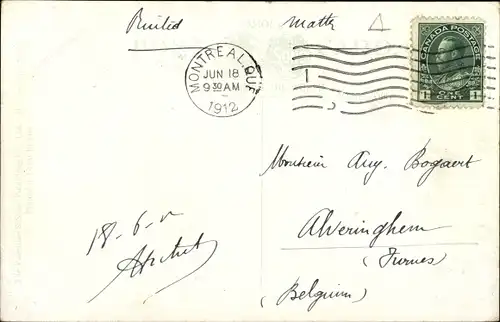 MONTREAL, QUE
JUN 18
9 30 AM
1912
CANADA POSTAGE
1 CENT 1
Monsieur Aug. Bogaert
Alveringhem
(Furnes)
(Belgium)
18-6-12